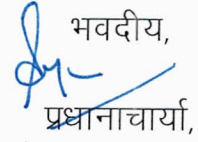 भवदीय,
प्रधानाचार्या,